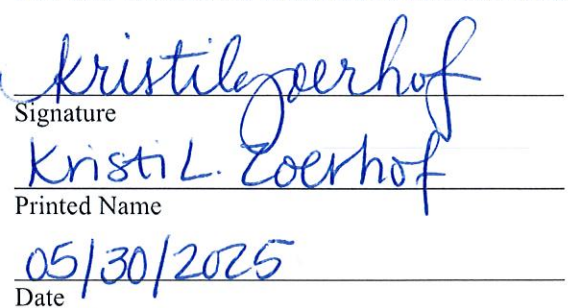 Kristi L Zoerhof
Signature
Kristi L. Zoerhof
Printed Name
05/30/2025
Date